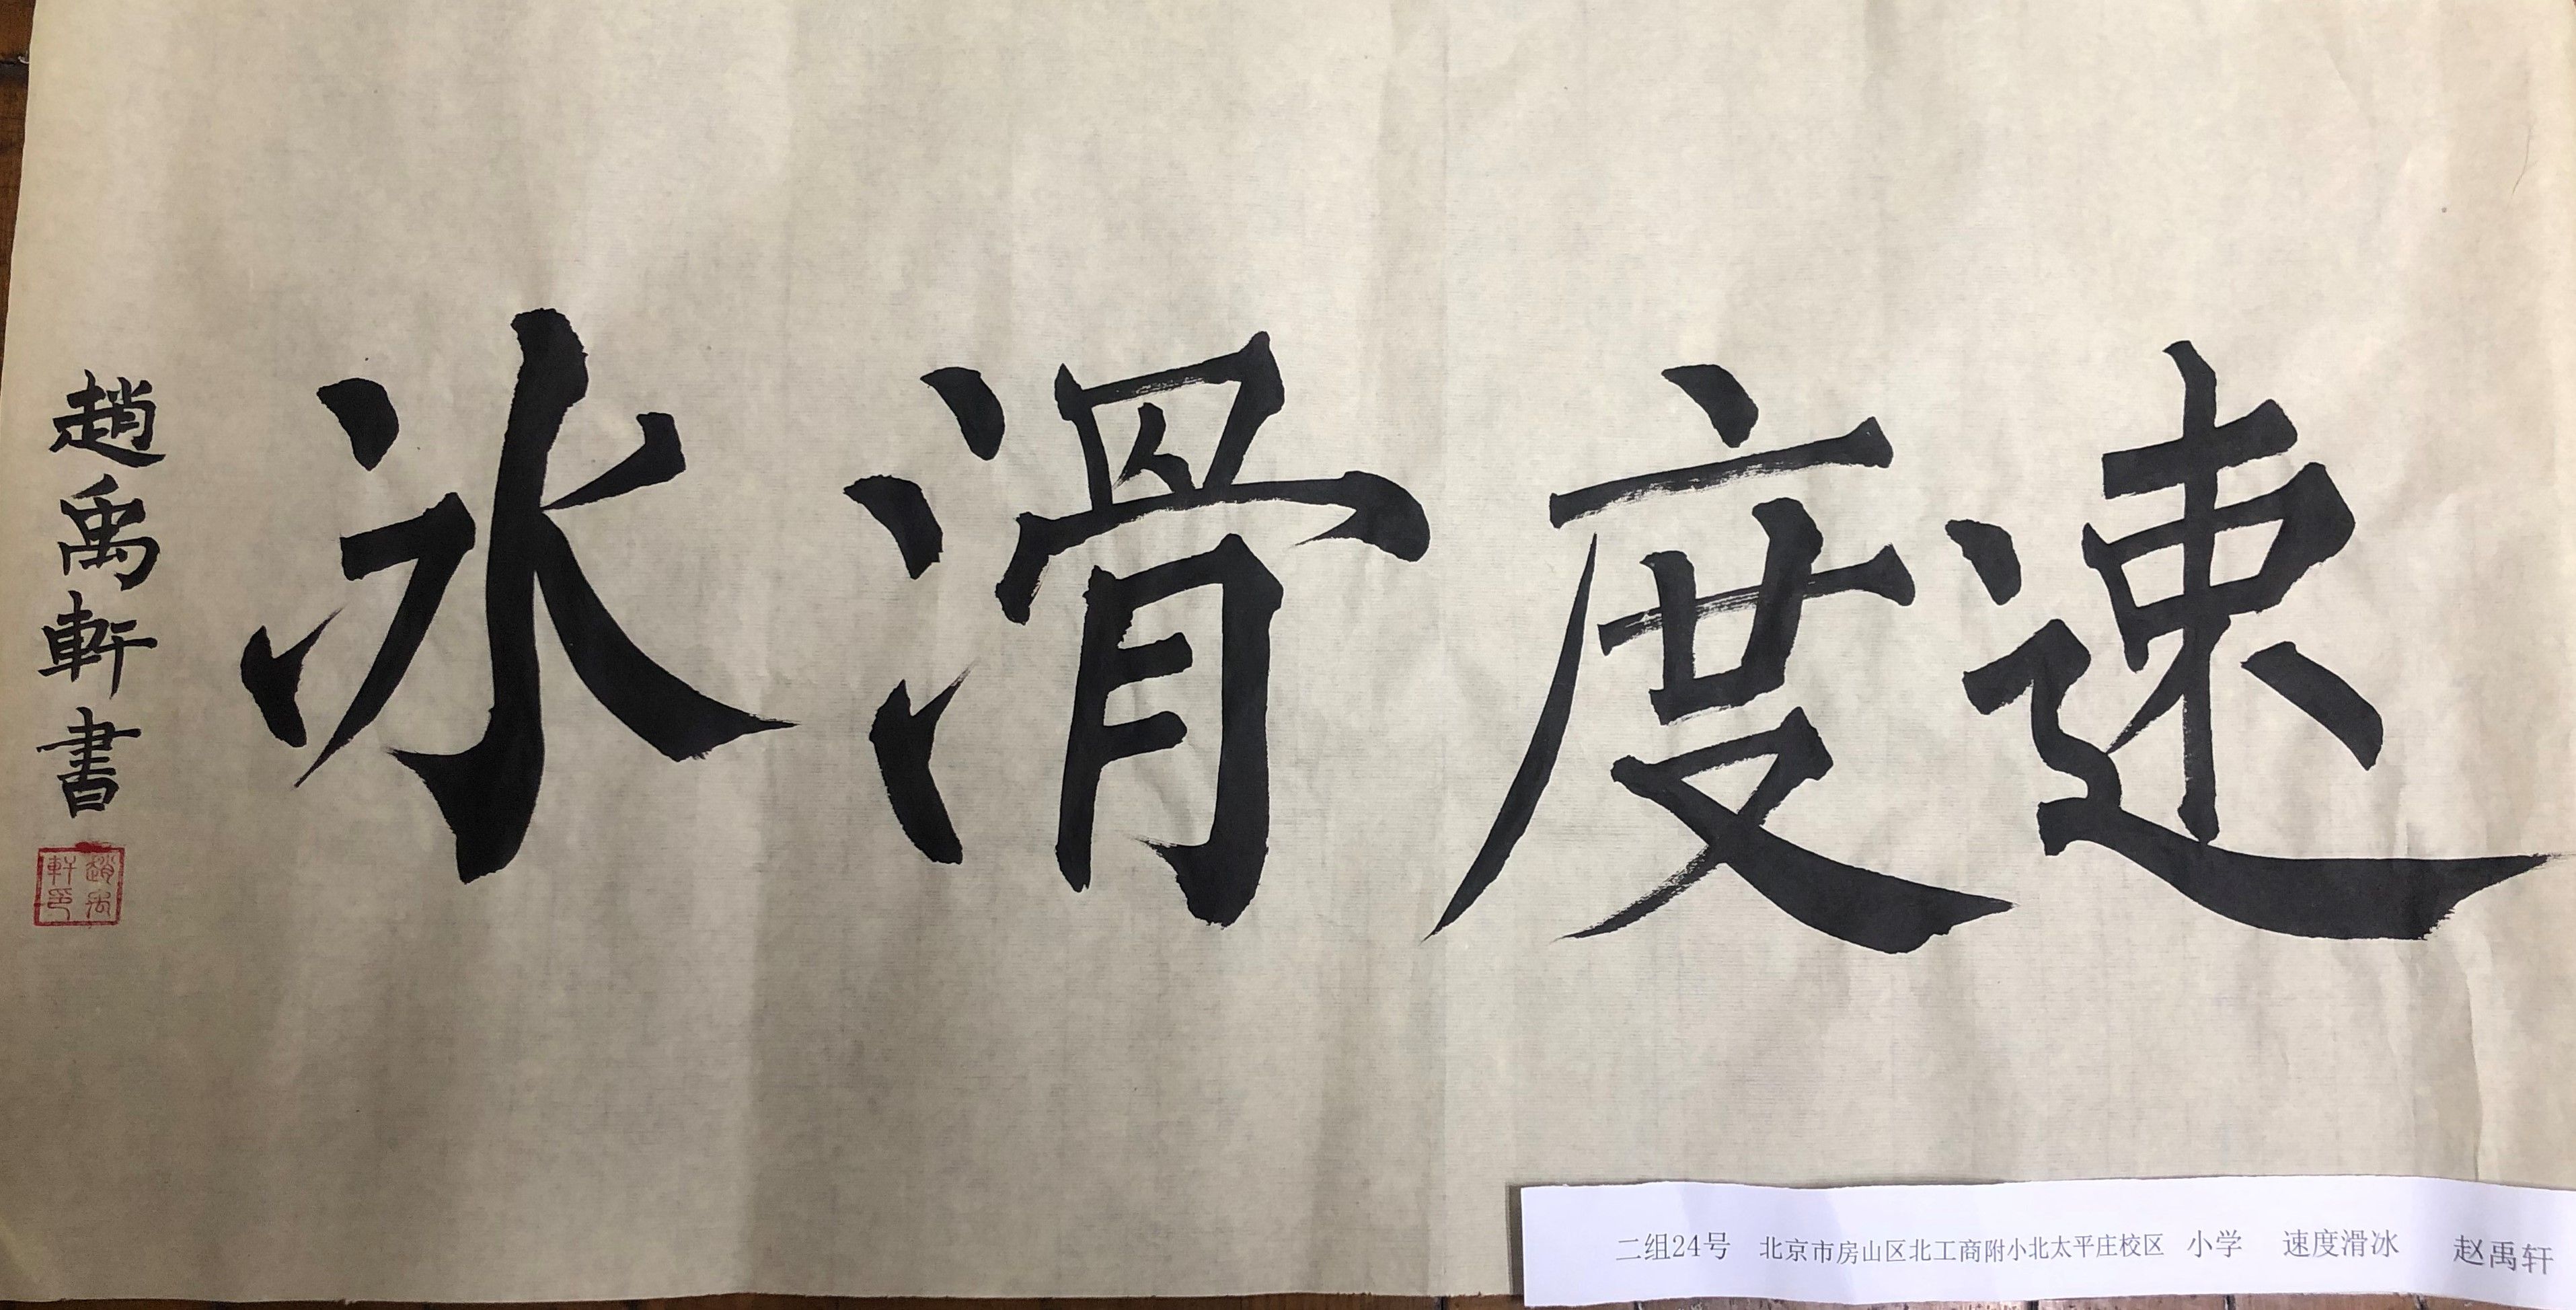 速度滑冰
趙禹軒書
趙禹軒印
二组24号 北京市房山区北工商附小北太平庄校区 小学 速度滑冰 赵禹轩